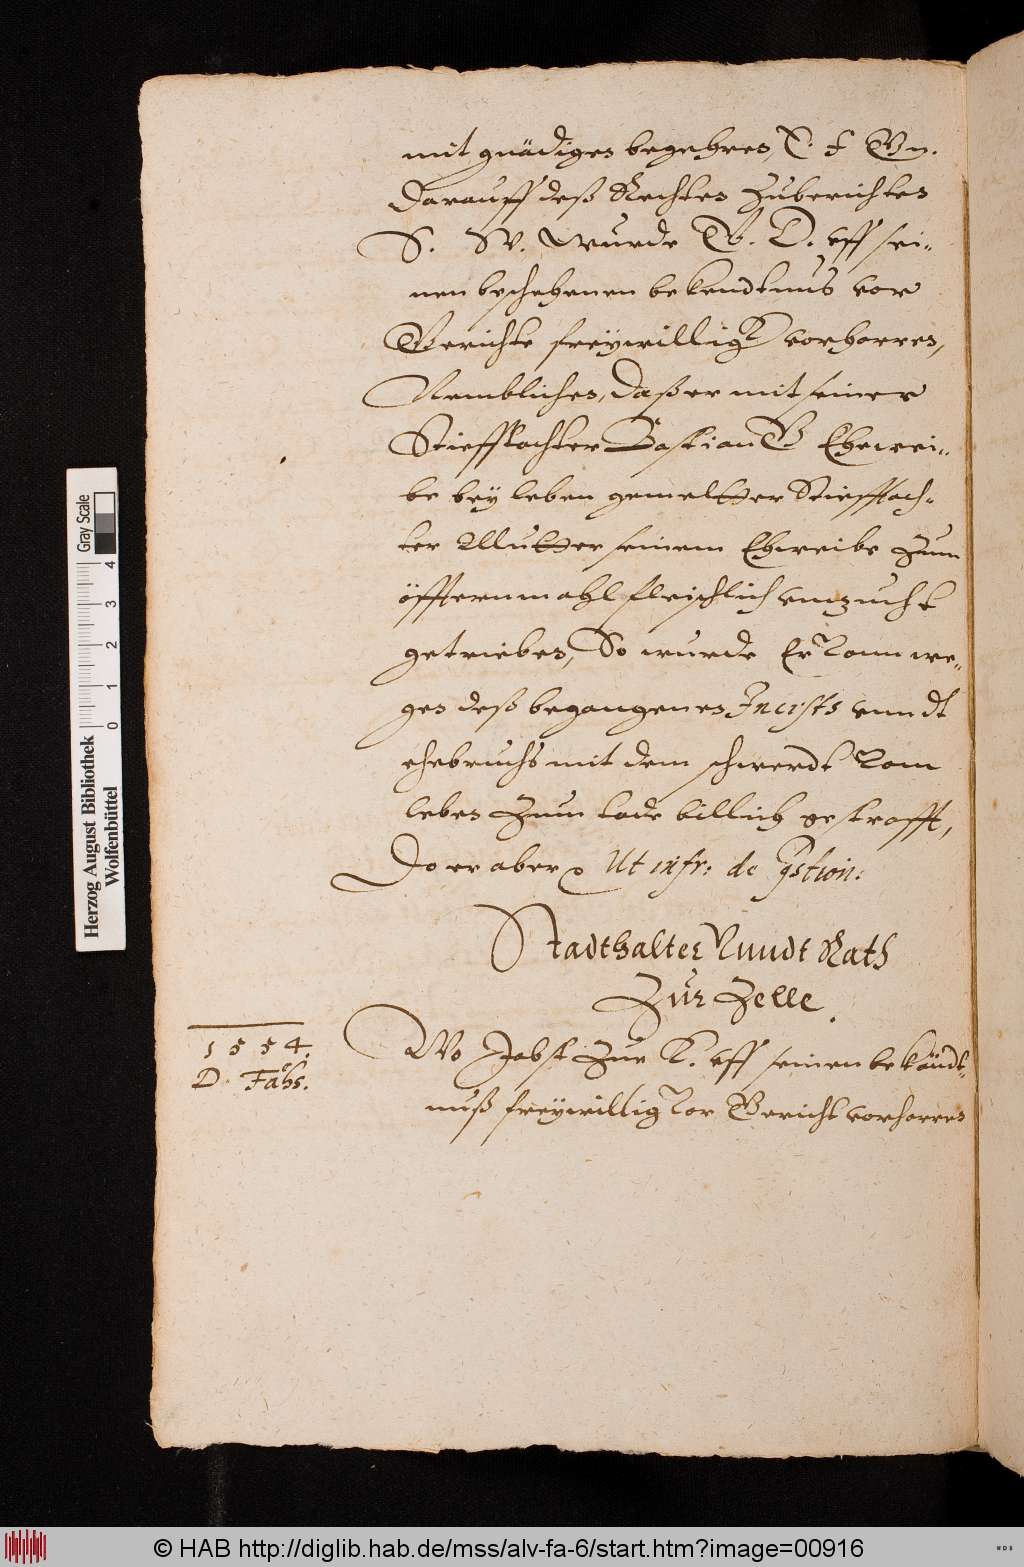 mit gnädiges begehres, E. f Gn.
Darauff deß Rechtes Zuberichtes
S. W. wurde B. D. uff sei-
nen beschehenen bekendtnus vor
Gerichte freywillig vorharres,
Nembliches, Daß er mit seiner
Stiefftochter Bastian B Eheweib-
be bey leben gemeltter Stiefftoch-
ter Mutter seinem Ehweibe Zum
öffternmahl fleischlich vnzucht
getriebes, So wurde Er Vonn we-
ges deß begangenes Incests vnndt
ehebruchs mit dem schwerdt Vom
lebes Zum tode billich gestrafft,
Do er aber Ut infr: de qstion:
Stadthalter Vnndt Rath
Zur Zelle.
1554.
D. Fahs.
Wo Jobst Zur K. uff seinen bekändt-
nuß freywillig Vor Gericht vorharres
Herzog August Bibliothek
Wolfenbüttel
Gray Scale
0 1 2 3 4
© HAB http://diglib.hab.de/mss/alv-fa-6/start.htm?image=00916
WDB